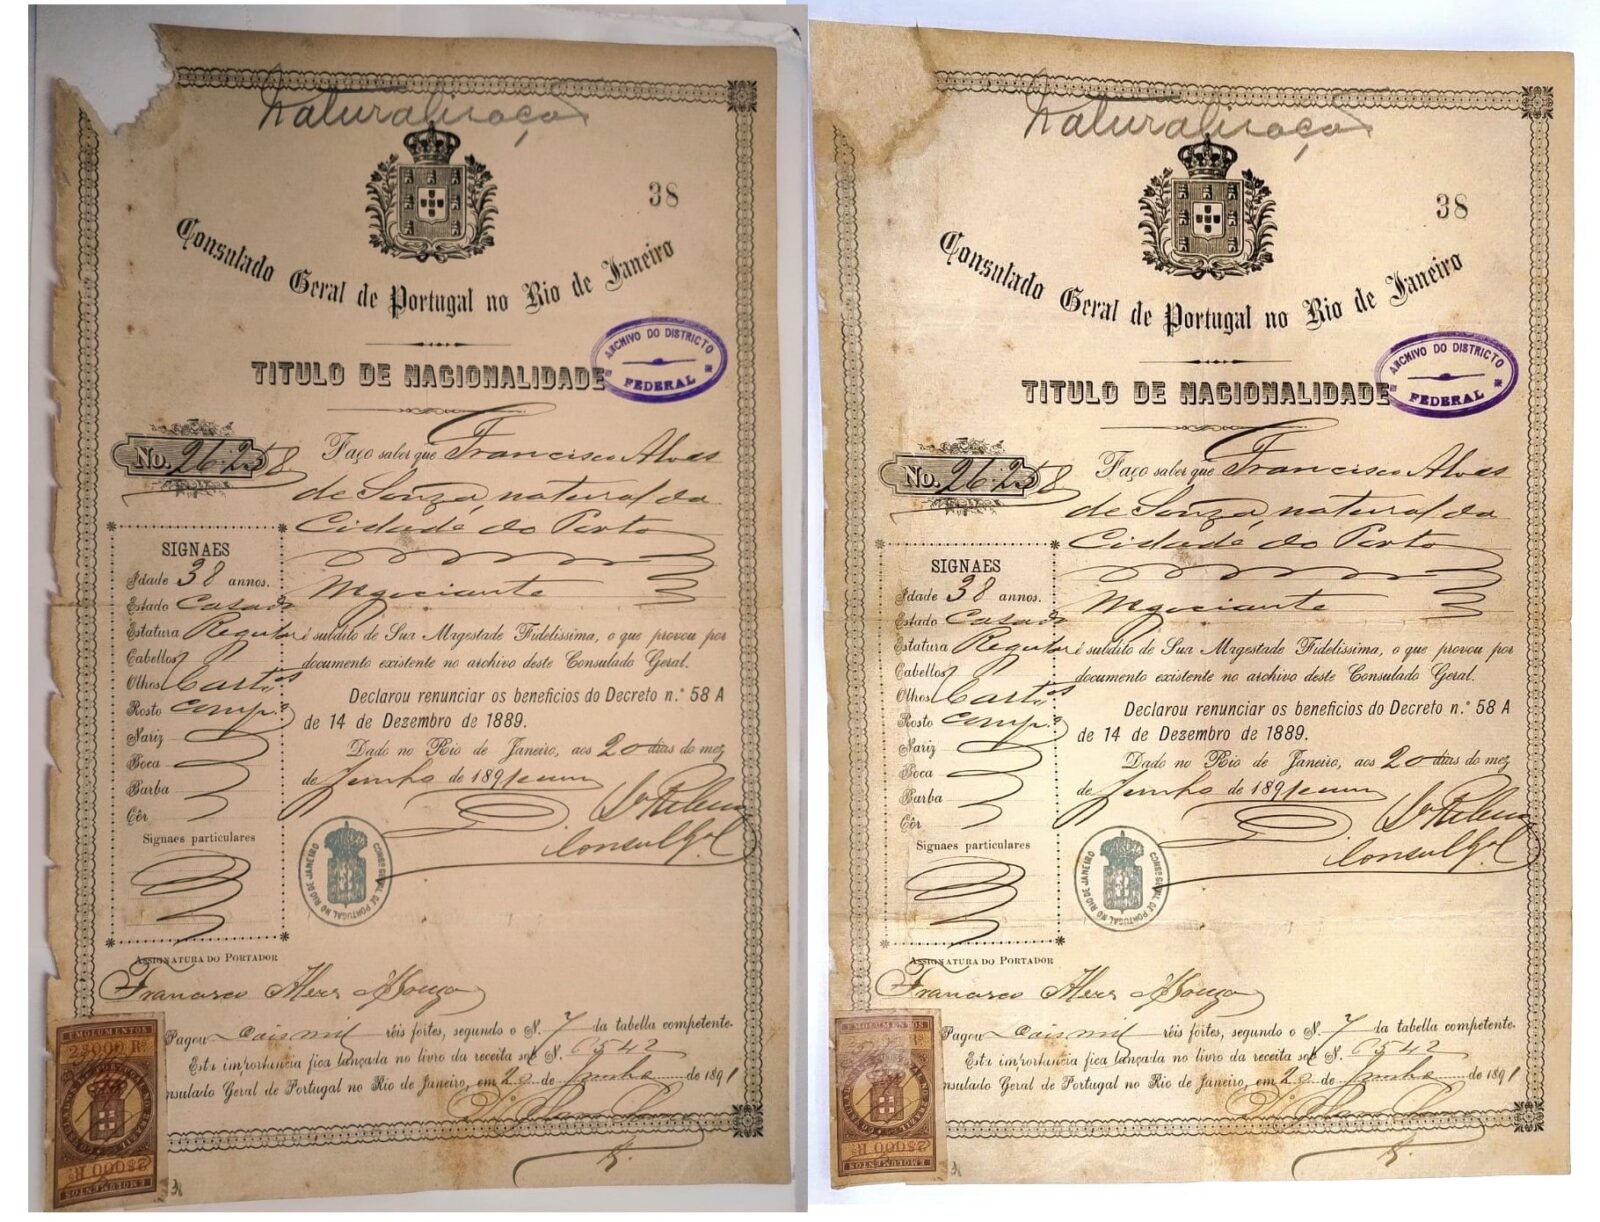 Naturalisação
38
Consulado Geral de Portugal no Rio de Janeiro
ARCHIVO DO DISTRICTO FEDERAL
TITULO DE NACIONALIDADE
No. 26.258
Faço saber que Francisco Alves
de Souza, natural da
Cidade do Porto
Negociante
é subdito de Sua Magestade Fidelissima, o que provou por
documento existente no archivo deste Consulado Geral.
Declarou renunciar os beneficios do Decreto n.º 58 A
de 14 de Dezembro de 1889.
Dado no Rio de Janeiro, aos 20 dias do mez
de Junho de 1891 e um
Consul Gal
SIGNAES
Idade 38 annos.
Estado Casado
Estatura Regular
Cabellos
Olhos Casts
Rosto Comp.o
Nariz
Boca
Barba
Côr
Signaes particulares
CONSO GERAL DE PORTUGAL NO RIO DE JANEIRO
ASSIGNATURA DO PORTADOR
Francisco Alves de Souza
Pagou dois mil réis fortes, segundo o N. 7 da tabella competente.
Esta importancia fica lançada no livro da receita sob N. 6542
nsulado Geral de Portugal no Rio de Janeiro, em 20 de Junho de 1891
EMOLUMENTOS
2$000 Rs
2$000 Rs
EMOLUMENTOS
Naturalisação
38
Consulado Geral de Portugal no Rio de Janeiro
ARCHIVO DO DISTRICTO FEDERAL
TITULO DE NACIONALIDADE
No. 26.258
Faço saber que Francisco Alves
de Souza, natural da
Cidade do Porto
Negociante
é subdito de Sua Magestade Fidelissima, o que provou por
documento existente no archivo deste Consulado Geral.
Declarou renunciar os beneficios do Decreto n.º 58 A
de 14 de Dezembro de 1889.
Dado no Rio de Janeiro, aos 20 dias do mez
de Junho de 1891 e um
Consul Gal
SIGNAES
Idade 38 annos.
Estado Casado
Estatura Regular
Cabellos
Olhos Casts
Rosto Comp.o
Nariz
Boca
Barba
Côr
Signaes particulares
CONSO GERAL DE PORTUGAL NO RIO DE JANEIRO
ASSIGNATURA DO PORTADOR
Francisco Alves de Souza
Pagou dois mil réis fortes, segundo o N. 7 da tabella competente.
Esta importancia fica lançada no livro da receita sob N. 6542
nsulado Geral de Portugal no Rio de Janeiro, em 20 de Junho de 1891
EMOLUMENTOS
2$000 Rs
2$000 Rs
EMOLUMENTOS